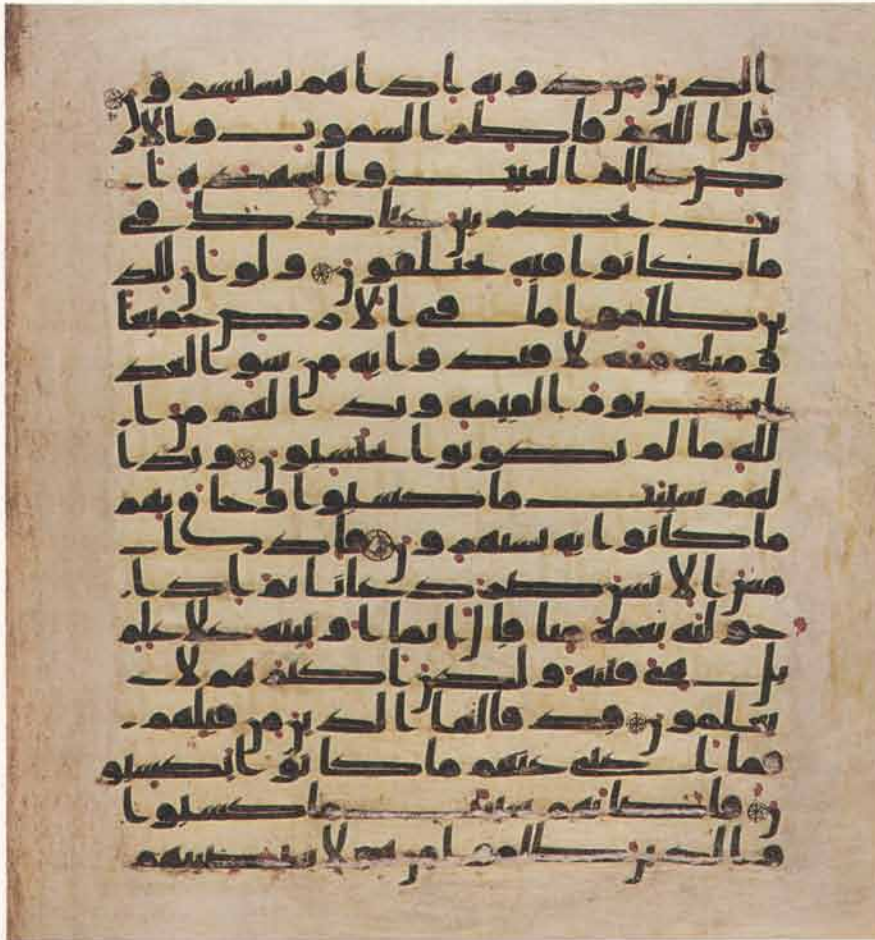 الذين من دونه اذا هم يستبشرون
قل اللهم فاطر السموت والار
ض عالم الغيب والشهدة ا
نت تحكم بين عبادك في
ما كانوا فيه يختلفون ولو ان للذ
ين ظلموا ما في الارض جميعا
ومثله معه لافتدوا به من سو العذ
اب يوم القيمة وبدا لهم من ا
لله ما لم يكونوا يحتسبون وبدا
لهم سيت ما كسبوا وحاق بهم
ما كانوا به يستهزون فاذا
مس الانسن ضر دعانا ثم اذا
خولنه نعمة منا قال انما اوتيته على علم
بل هي فتنة ولكن اكثرهم لا
يعلمون قد قالها الذين من قبلهم
فما اغنى عنهم ما كانوا يكسبو
ن فاصابهم سيت ما كسبوا
والذين ظلموا من هولا سيصيبهم